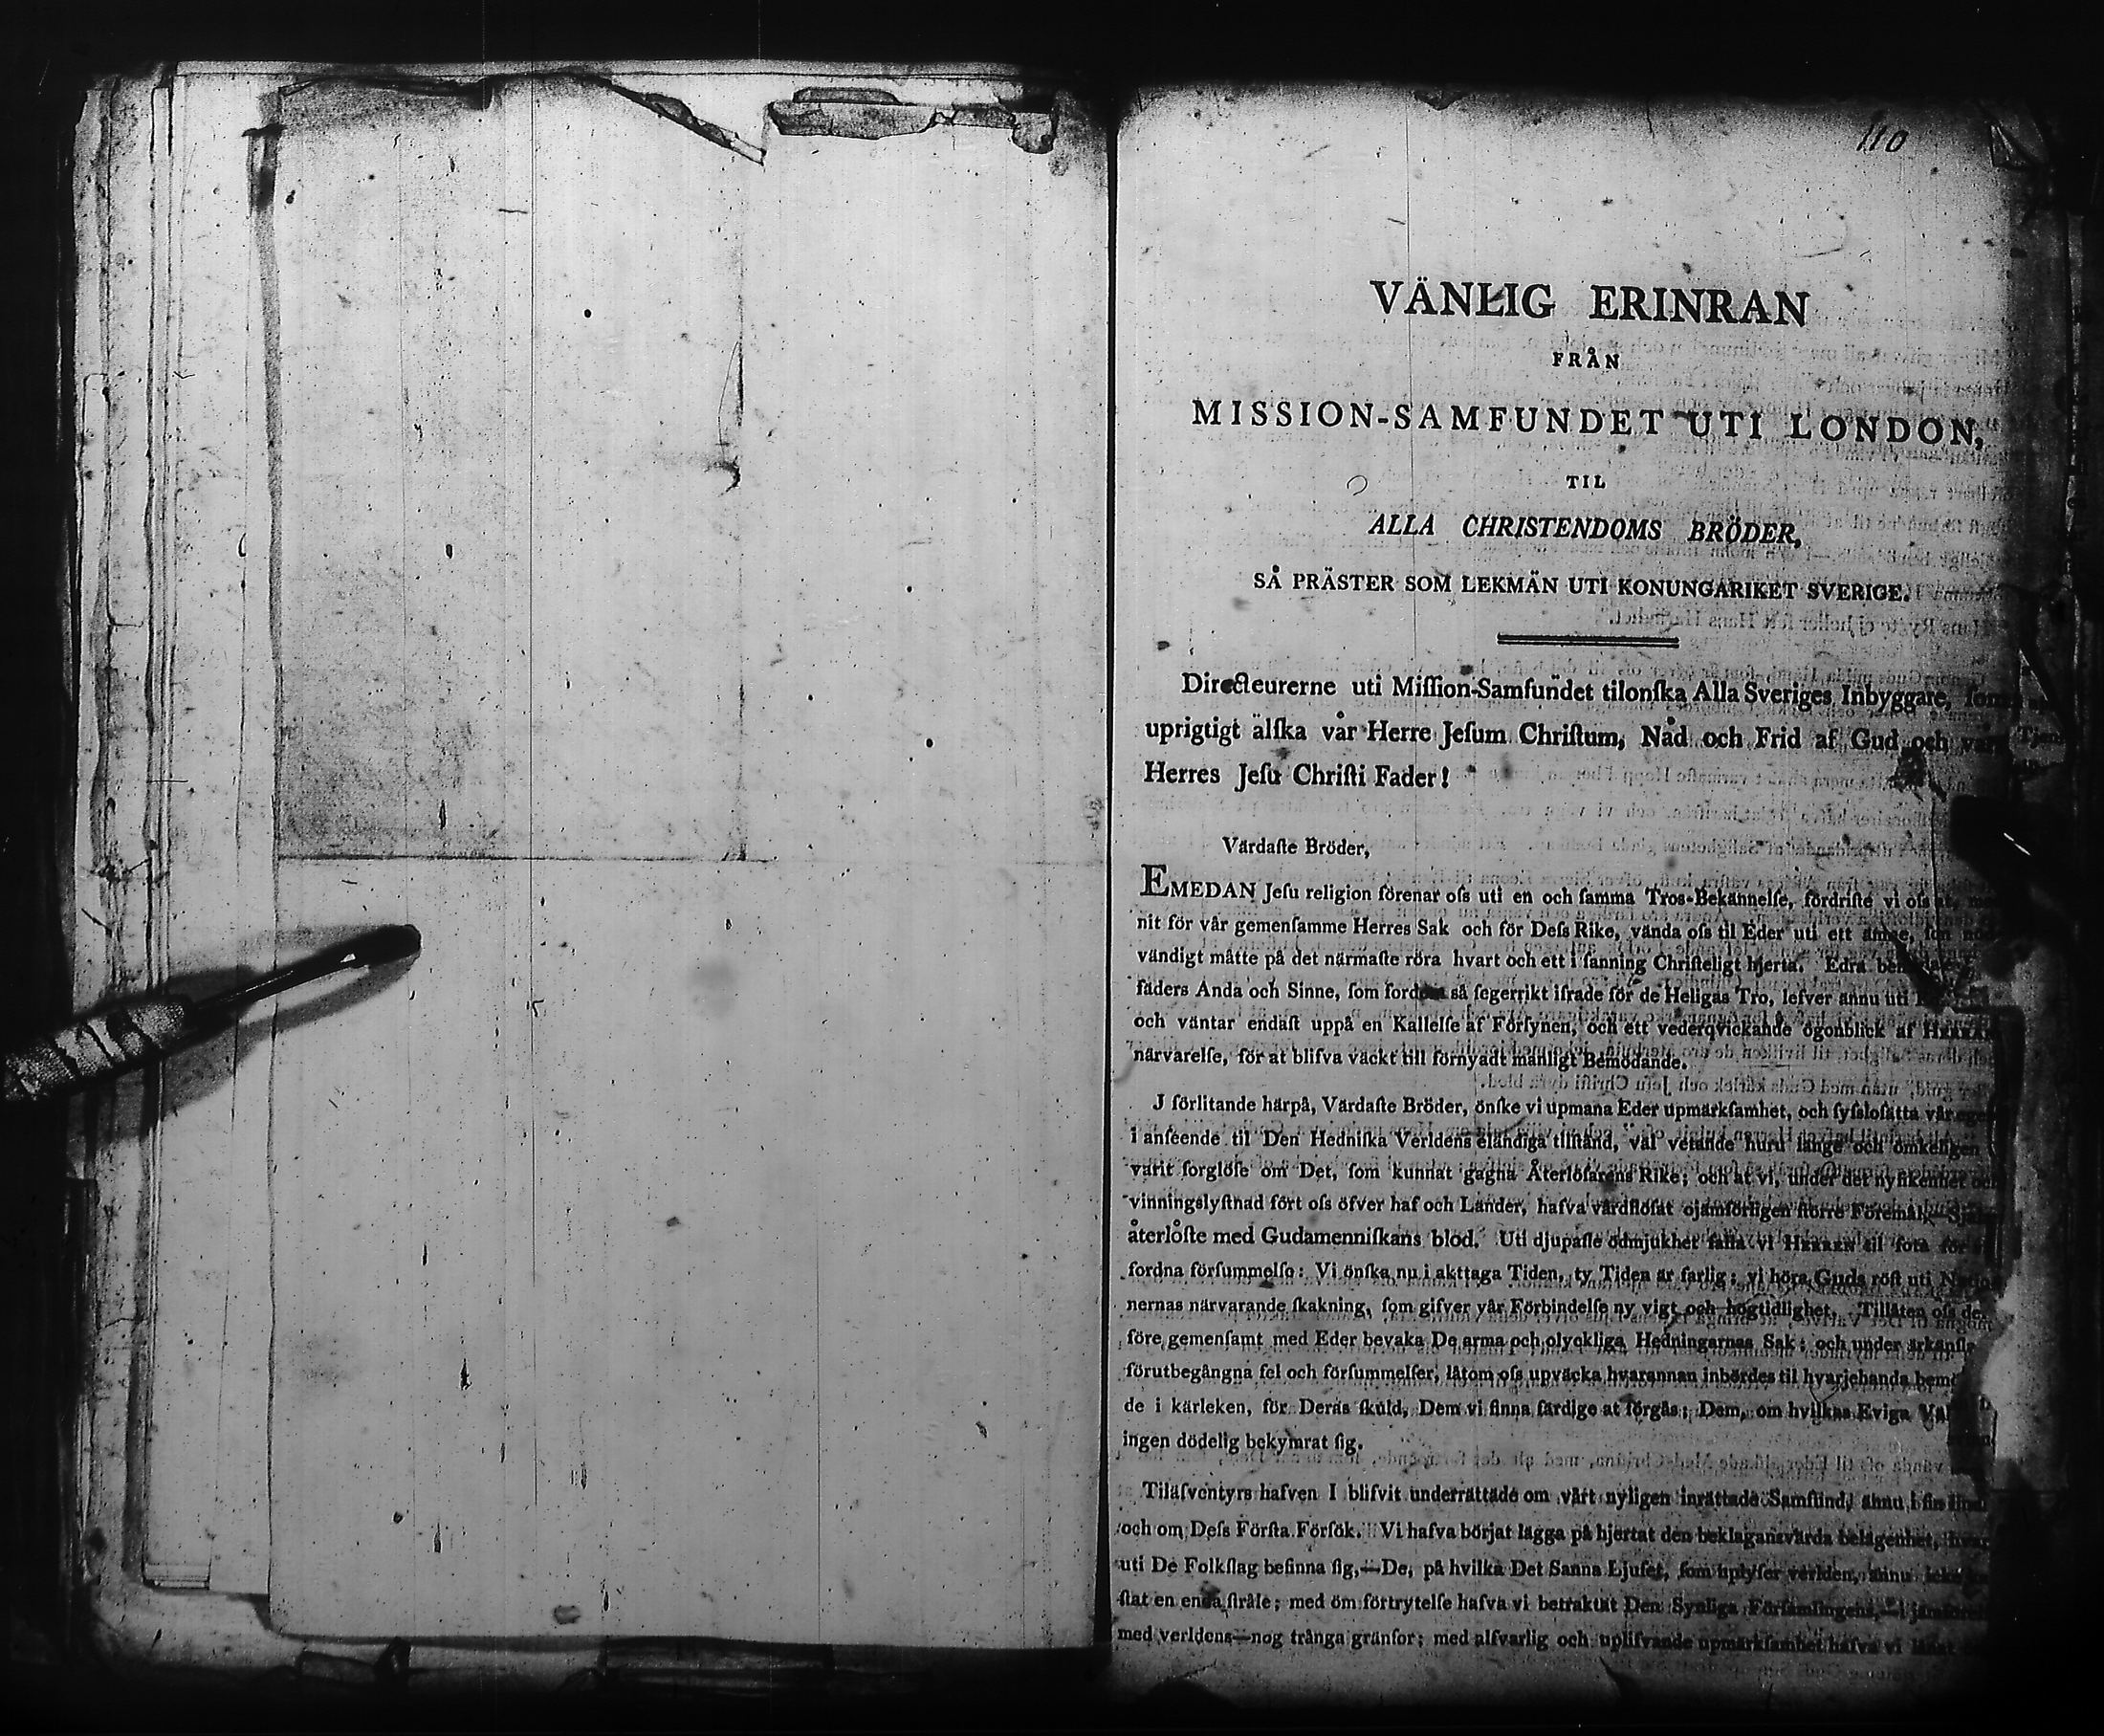 110
VÄNLIG ERINRAN
FRÅN
MISSION-SAMFUNDET UTI LONDON,
TIL
ALLA CHRISTENDOMS BRÖDER,
SÅ PRÄSTER SOM LEKMÄN UTI KONUNGARIKET SVERIGE.
Directeurerne uti Miſſion-Samfundet tilonſka Alla Sveriges Inbyggare, ſom
uprigtigt älſka vår Herre Jeſum Chriſtum, Nåd och Frid af Gud och vår
Herres Jeſu Chriſti Fader!
Värdaſte Bröder,
EMEDAN Jeſu religion förenar oſs uti en och ſamma Tros-Bekännelſe, fördriſte vi oſs at,
nit för vår gemenſamme Herres Sak och för Deſs Rike, vända oſs til Eder uti ett ämne,
vändigt måtte på det närmaſte röra hvart och ett i ſanning Chriſteligt hjerta. Edra
fäders Anda och Sinne, ſom fordom ſå ſegerrikt ifrade för de Heligas Tro, lefver ännu uti
och väntar endaſt uppå en Kallelſe af Förſynen, och ett vederqvickande ögonblick af HERRANS
närvarelſe, för at blifva väckt till förnyadt manligt Bemödande.
J förlitande härpå, Värdaſte Bröder, önſke vi upmana Eder upmärkſamhet, och ſyſsloſätta vår
i anſeende til Den Hedniſka Verldens eländiga tilſtånd, väl vetande huru länge och ömkeligen
varit ſorglöſe om Det, ſom kunnat gagna Återlöſarens Rike; och at vi, under det nyfikenhet och
vinningslyſtnad fört oſs öfver haf och Länder, hafva vårdſlöſat ojämförligen ſtörre Föremål,—Själar
återlöſte med Gudamenniſkans blod. Uti djupaſte ödmjukhet falla vi HERREN til fota för
fordna förſummelſe: Vi önſka nu i akttaga Tiden, ty Tiden är farlig; vi höra Guds röſt uti
nernas närvarande ſkakning, ſom gifver vår Förbindelſe ny vigt och högtidlighet. Tillåten oſs
före gemenſamt med Eder bevaka De arma och olyckliga Hedningarnas Sak; och under
förutbegångna fel och förſummelſer, låtom oſs upväcka hvarannan inbördes til hvarjehanda
de i kärleken, för Deras ſkuld, Dem vi finna färdige at förgås; Dem, om hvilkas Eviga
ingen dödelig bekymrat ſig.
Tiläfventyrs hafven I blifvit underrättade om vårt nyligen inrättade Samfund, ännu i ſin
och om Deſs Förſta Förſök. Vi hafva börjat lägga på hjertat den beklagansvärda belägenhet,
uti De Folkſlag befinna ſig,—De, på hvilka Det Sanna Ljuſet, ſom uplyſer verlden, ännu
ſtat en enda ſtråle; med öm förtrytelſe hafva vi betraktat Den Synliga Förſamlingens,—i
med verldens—nog trånga gränſor; med alfvarlig och uplifvande upmärkſamhet hafva vi